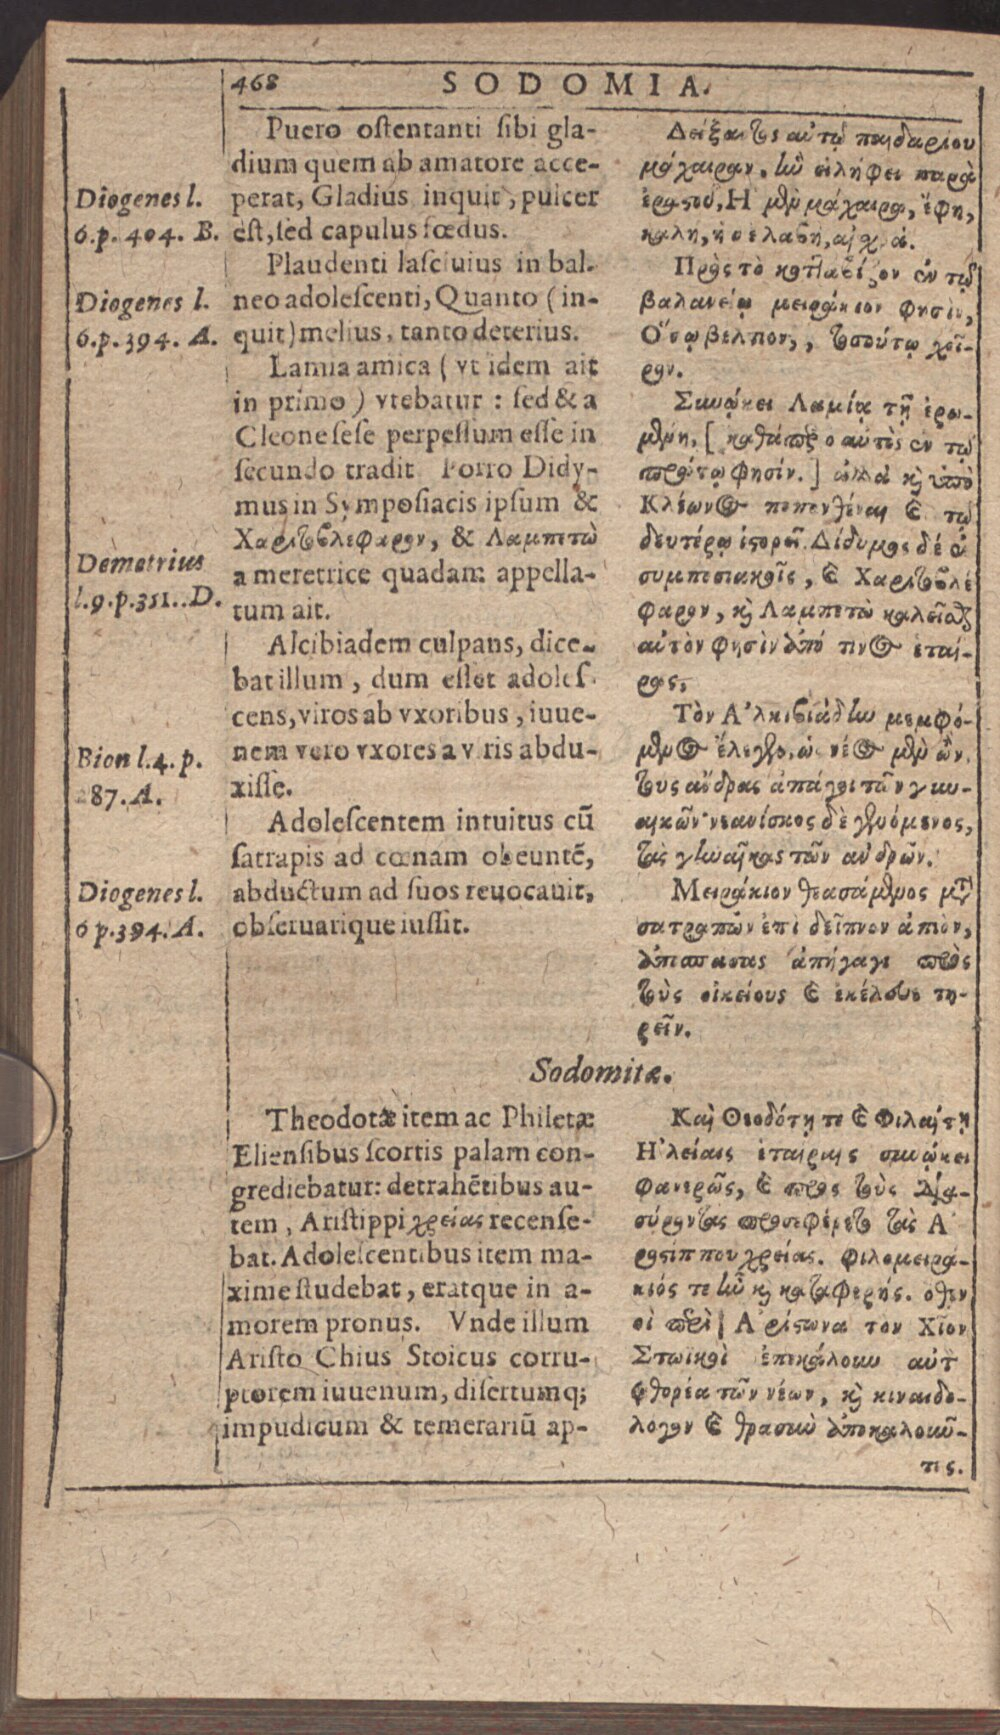 468
SODOMIA.
Diogenes l.
6.p. 404. B.
Diogenes l.
6.p.394. A.
Demetrius
l.9.p.351..D.
Bion l.4.p.
287.A.
Diogenes l.
6 p.394. A.
Puero ostentanti sibi gla-
dium quem ab amatore acce-
perat, Gladius inquit, pulcer
est, sed capulus fœdus.
Plaudenti lasciuius in bal-
neo adolescenti, Quanto (in-
quit) melius, tanto deterius.
Lamia amica (vt idem ait
in primo) vtebatur: sed & a
Cleone sese perpessum esse in
secundo tradit. Porro Didy-
mus in Symposiacis ipsum &
Χαριτοβλέφαρον, & Λαμπετὼ
a meretrice quadam appella-
tum ait.
Alcibiadem culpans, dice-
bat illum, dum esset adoles-
cens, viros ab vxoribus, iuue-
nem vero vxores a viris abdu-
xisse.
Adolescentem intuitus cū
satrapis ad cœnam obeuntē,
abductum ad suos reuocauit,
obseruarique iussit.
Δείξαντος αὐτῷ παιδαρίου
μάχαιραν, ἣν εἰλήφει παρὰ
ἐραστοῦ, Η μὲν μάχαιρα, ἔφη,
καλὴ, ἡ δὲ λαβὴ, αἰσχρά.
Πρὸς τὸ κοτταβίζον ἐν τῷ
βαλανείῳ μειράκιον φησὶν,
Ὅσῳ βέλτιον, , τοσούτῳ χεῖ-
ρον.
Συνῴκει Λαμίᾳ τῇ ἐρω-
μένῃ, [καθάπερ ὁ αὐτὸς ἐν τῷ
πρώτῳ φησίν.] ἀλλὰ καὶ ὑπὸ
Κλέωνος πεπονθέναι ἐν τῷ
δευτέρῳ ἱστορεῖ. Δίδυμος δὲ ἐν
συμποσιακοῖς, καὶ Χαριτοβλέ
φαρον, καὶ Λαμπετὼ καλεῖσθαι
αὐτὸν φησὶν ἀπό τινος ἑταί-
ρας,
Τὸν Ἀλκιβιάδην μεμφό-
μενος ἔλεγεν, ὡς νέος μὲν ὢν,
τοὺς ἄνδρας ἀπάγοι τῶν γυν-
αικῶν· νεανίσκος δὲ γενόμενος,
τὰς γυναῖκας τῶν ἀνδρῶν.
Μειράκιον θεασάμενος μετὰ
σατραπῶν ἐπὶ δεῖπνον ἀπιὸν,
ἀποσπάσας ἀπήγαγε πρὸς
τοὺς οἰκείους καὶ ἐκέλευσε τη-
ρεῖν.
Sodomitæ.
Theodotæ item ac Philetæ
Eliensibus scortis palam con-
grediebatur: detrahētibus au-
tem, Aristippi χρείας recense-
bat. Adolescentibus item ma-
xime studebat, eratque in a-
morem pronus. Vnde illum
Aristo Chius Stoicus corru-
ptorem iuuenum, disertumq;
impudicum & temerariū ap-
Καὶ Θεοδότῃ τε καὶ Φιλαίτῃ
Ηλείαις ἑταίραις συνῴκει
φανερῶς, καὶ πρὸς τοὺς δια-
σύροντας προσεφέρετο τὰς Α
ρισίππου χρείας. φιλομειρά-
κιός τε ἦν καὶ καταφερής. ὅθεν
οἱ περὶ Ἀρίστωνα τὸν Χῖον
Στωικοὶ ἐπεκάλουν αὐτ
φθορέα τῶν νέων, καὶ κιναιδο-
λόγον καὶ θρασὺν ἀποκαλοῦν-
τες.